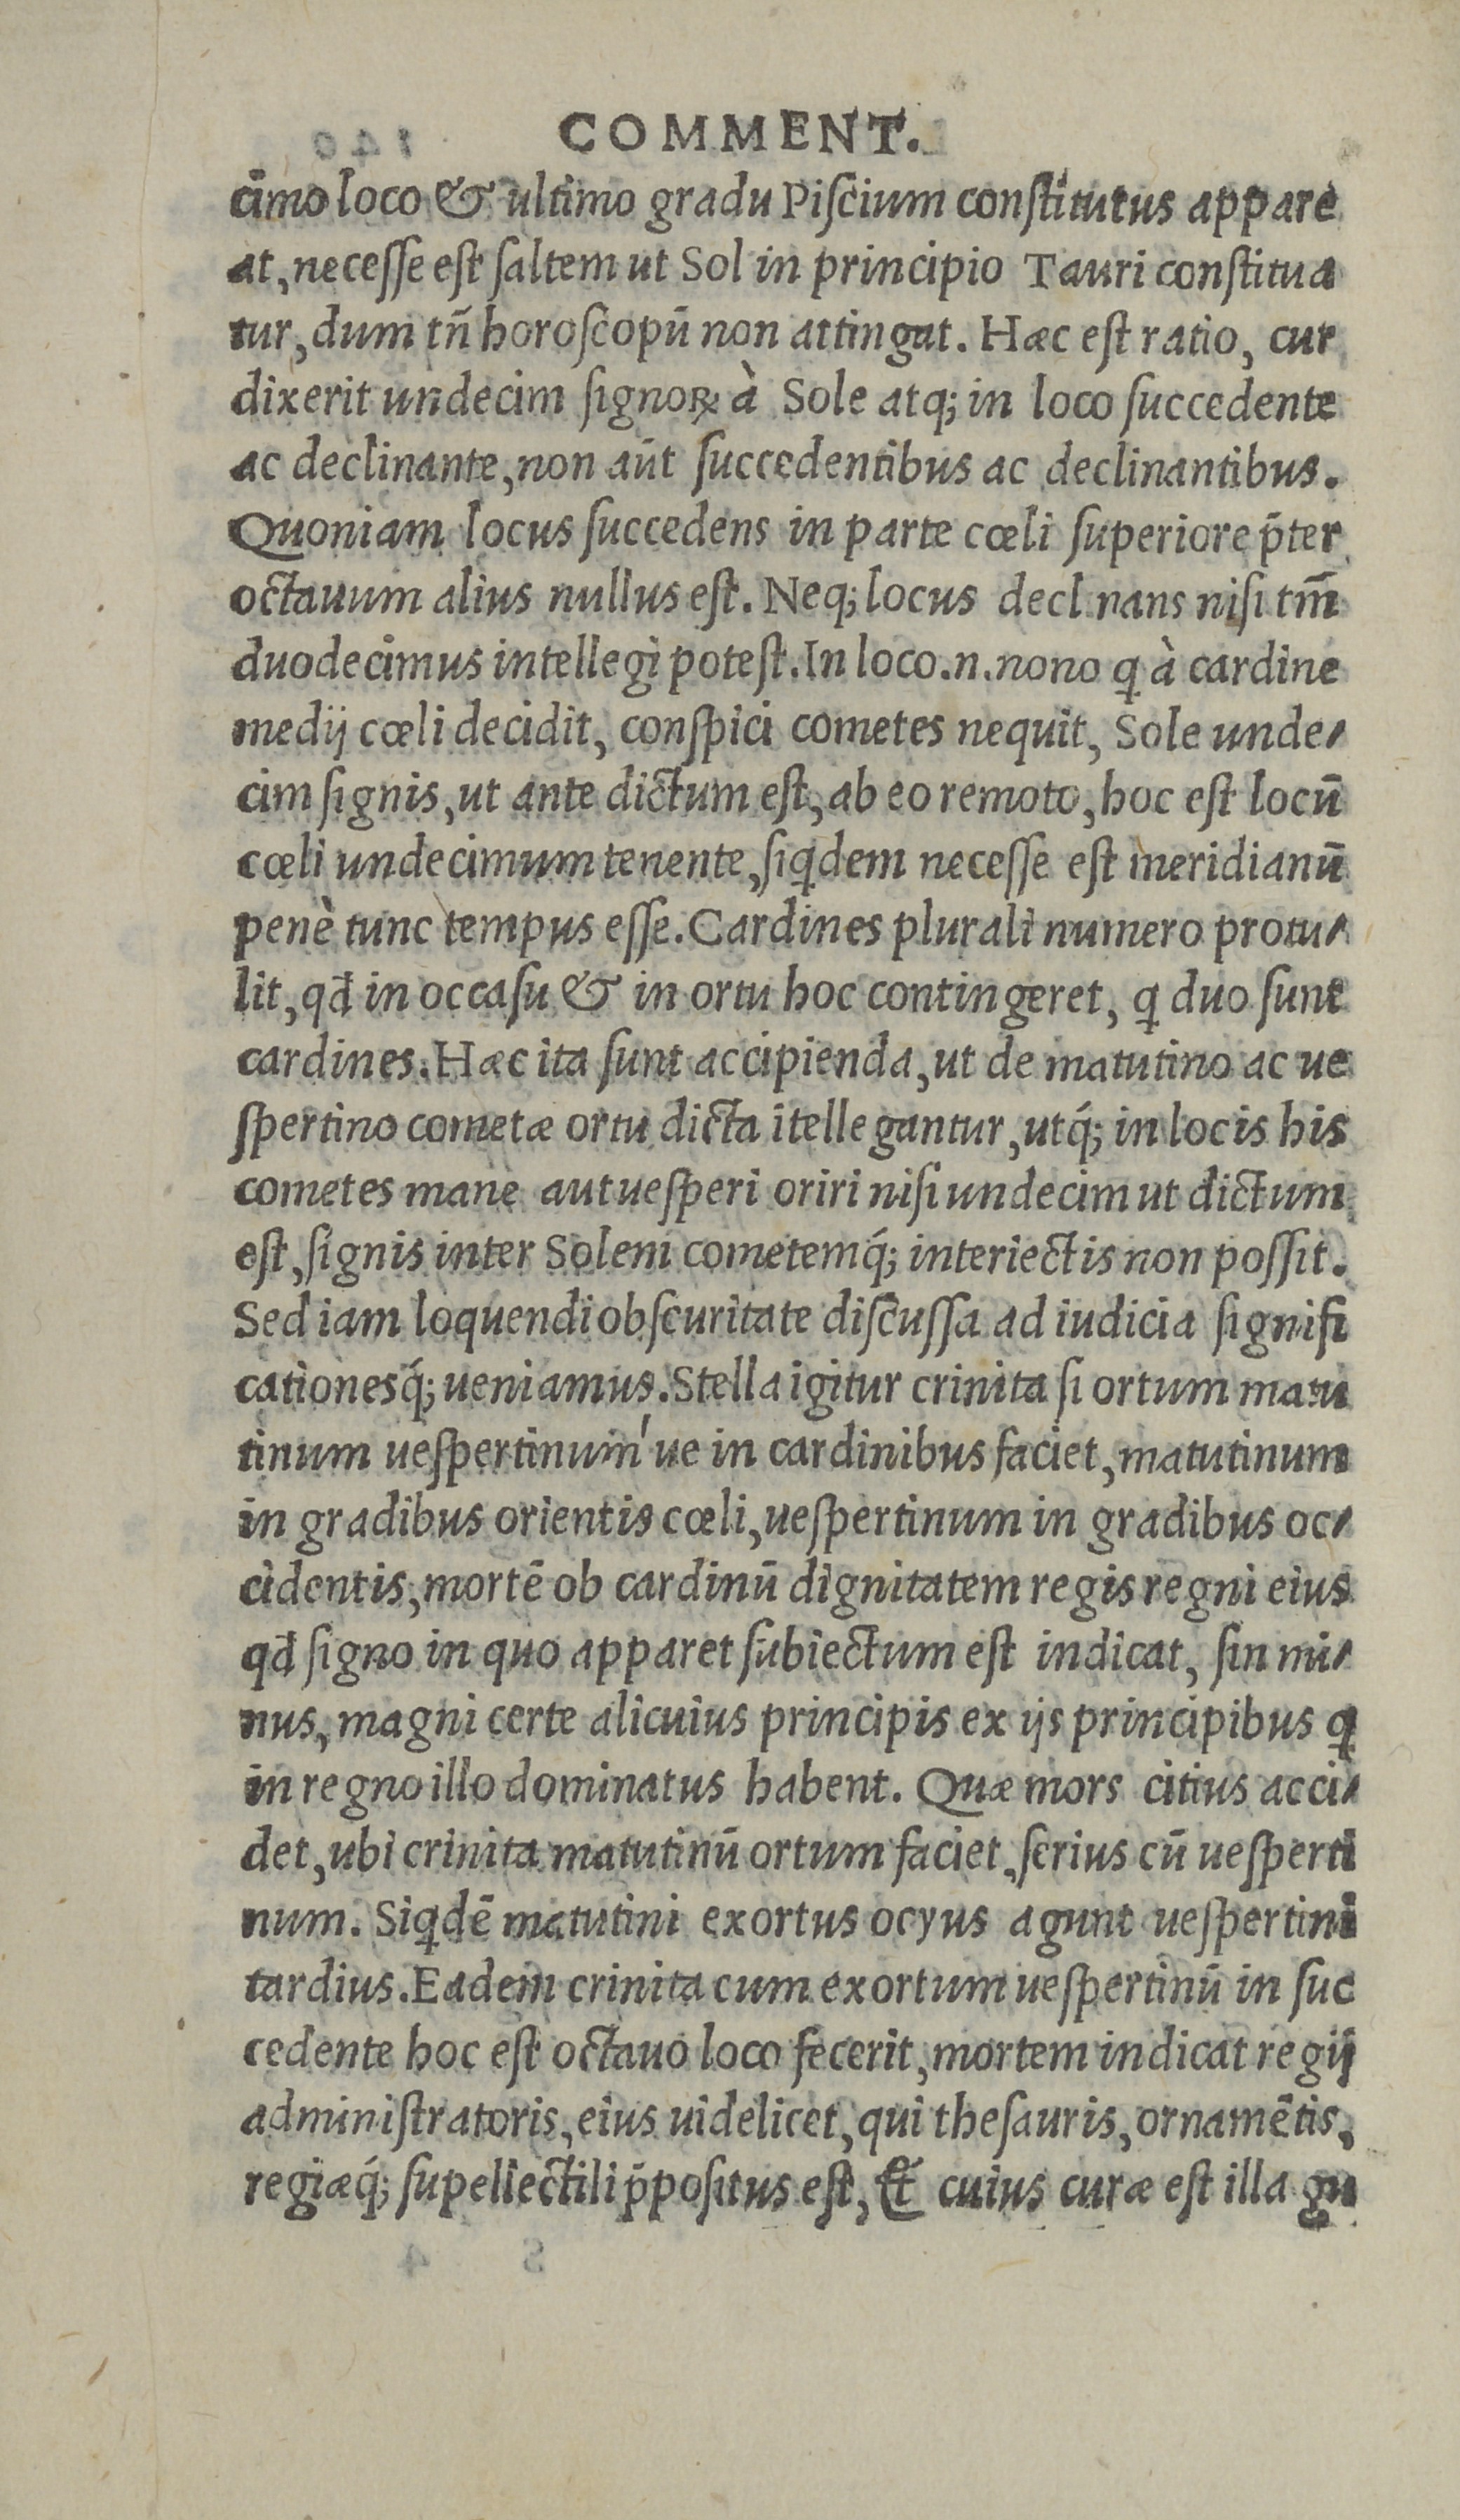 COMMENT.
cimo loco & ultimo gradu Piſcium conſtitutus appare
at, neceſſe eſt ſaltem ut Sol in principio Tauri conſtitua
tur, dum tñ horoſcopū non attingat. Hæc eſt ratio, cur
dixerit undecim ſignoꝝ à Sole atq; in loco ſuccedente
ac declinante, non aūt ſuccedentibus ac declinantibus.
Quoniam locus ſuccedens in parte cœli ſuperiore p̄ter
octauum alius nullus eſt. Neq; locus decl nans niſi tm̄
duodecimus intellegi poteſt. In loco .n. nono q à cardine
medij cœli decidit, conſpici cometes nequit, Sole unde-
cim ſignis, ut ante dictum eſt, ab eo remoto, hoc eſt locū
cœli undecimum tenente, ſiqdem neceſſe eſt meridianū
penè tunc tempus eſſe. Cardines plurali numero protu-
lit, qđ in occaſu & in ortu hoc contingeret, q duo ſunt
cardines. Hæc ita ſunt accipienda, ut de matutino ac ue
ſpertino cometæ ortu dicta itellegantur, utq́; in locis his
cometes mane aut ueſperi oriri niſi undecim ut dictum
eſt, ſignis inter Solem cometemq́; interiectis non poſſit.
Sed iam loquendi obſcuritate diſcuſſa ad iudicia ſignifi
cationesq́; ueniamus. Stella igitur crinita ſi ortum matu
tinum ueſpertinum' ue in cardinibus faciet, matutinum
in gradibus orientis cœli, ueſpertinum in gradibus oc-
cidentis, mortē ob cardinū dignitatem regis regni eius
qđ ſigno in quo apparet ſubiectum eſt indicat, ſin mi-
nus, magni certe alicuius principis ex ijs principibus q
in regno illo dominatus habent. Quæ mors citius acci-
det, ubi crinita matutinū ortum faciet, ſerius cū ueſperti
num. Siqdē matutini exortus ocyus agunt ueſpertini
tardius. Eadem crinita cum exortum ueſpertinū in ſuc
cedente hoc eſt octauo loco fecerit, mortem indicat regij
adminiſtratoris, eius uidelicet, qui theſauris, ornamētis,
regiæq́; ſupellectili p̄poſitus eſt, Et cuius curæ eſt illa gu